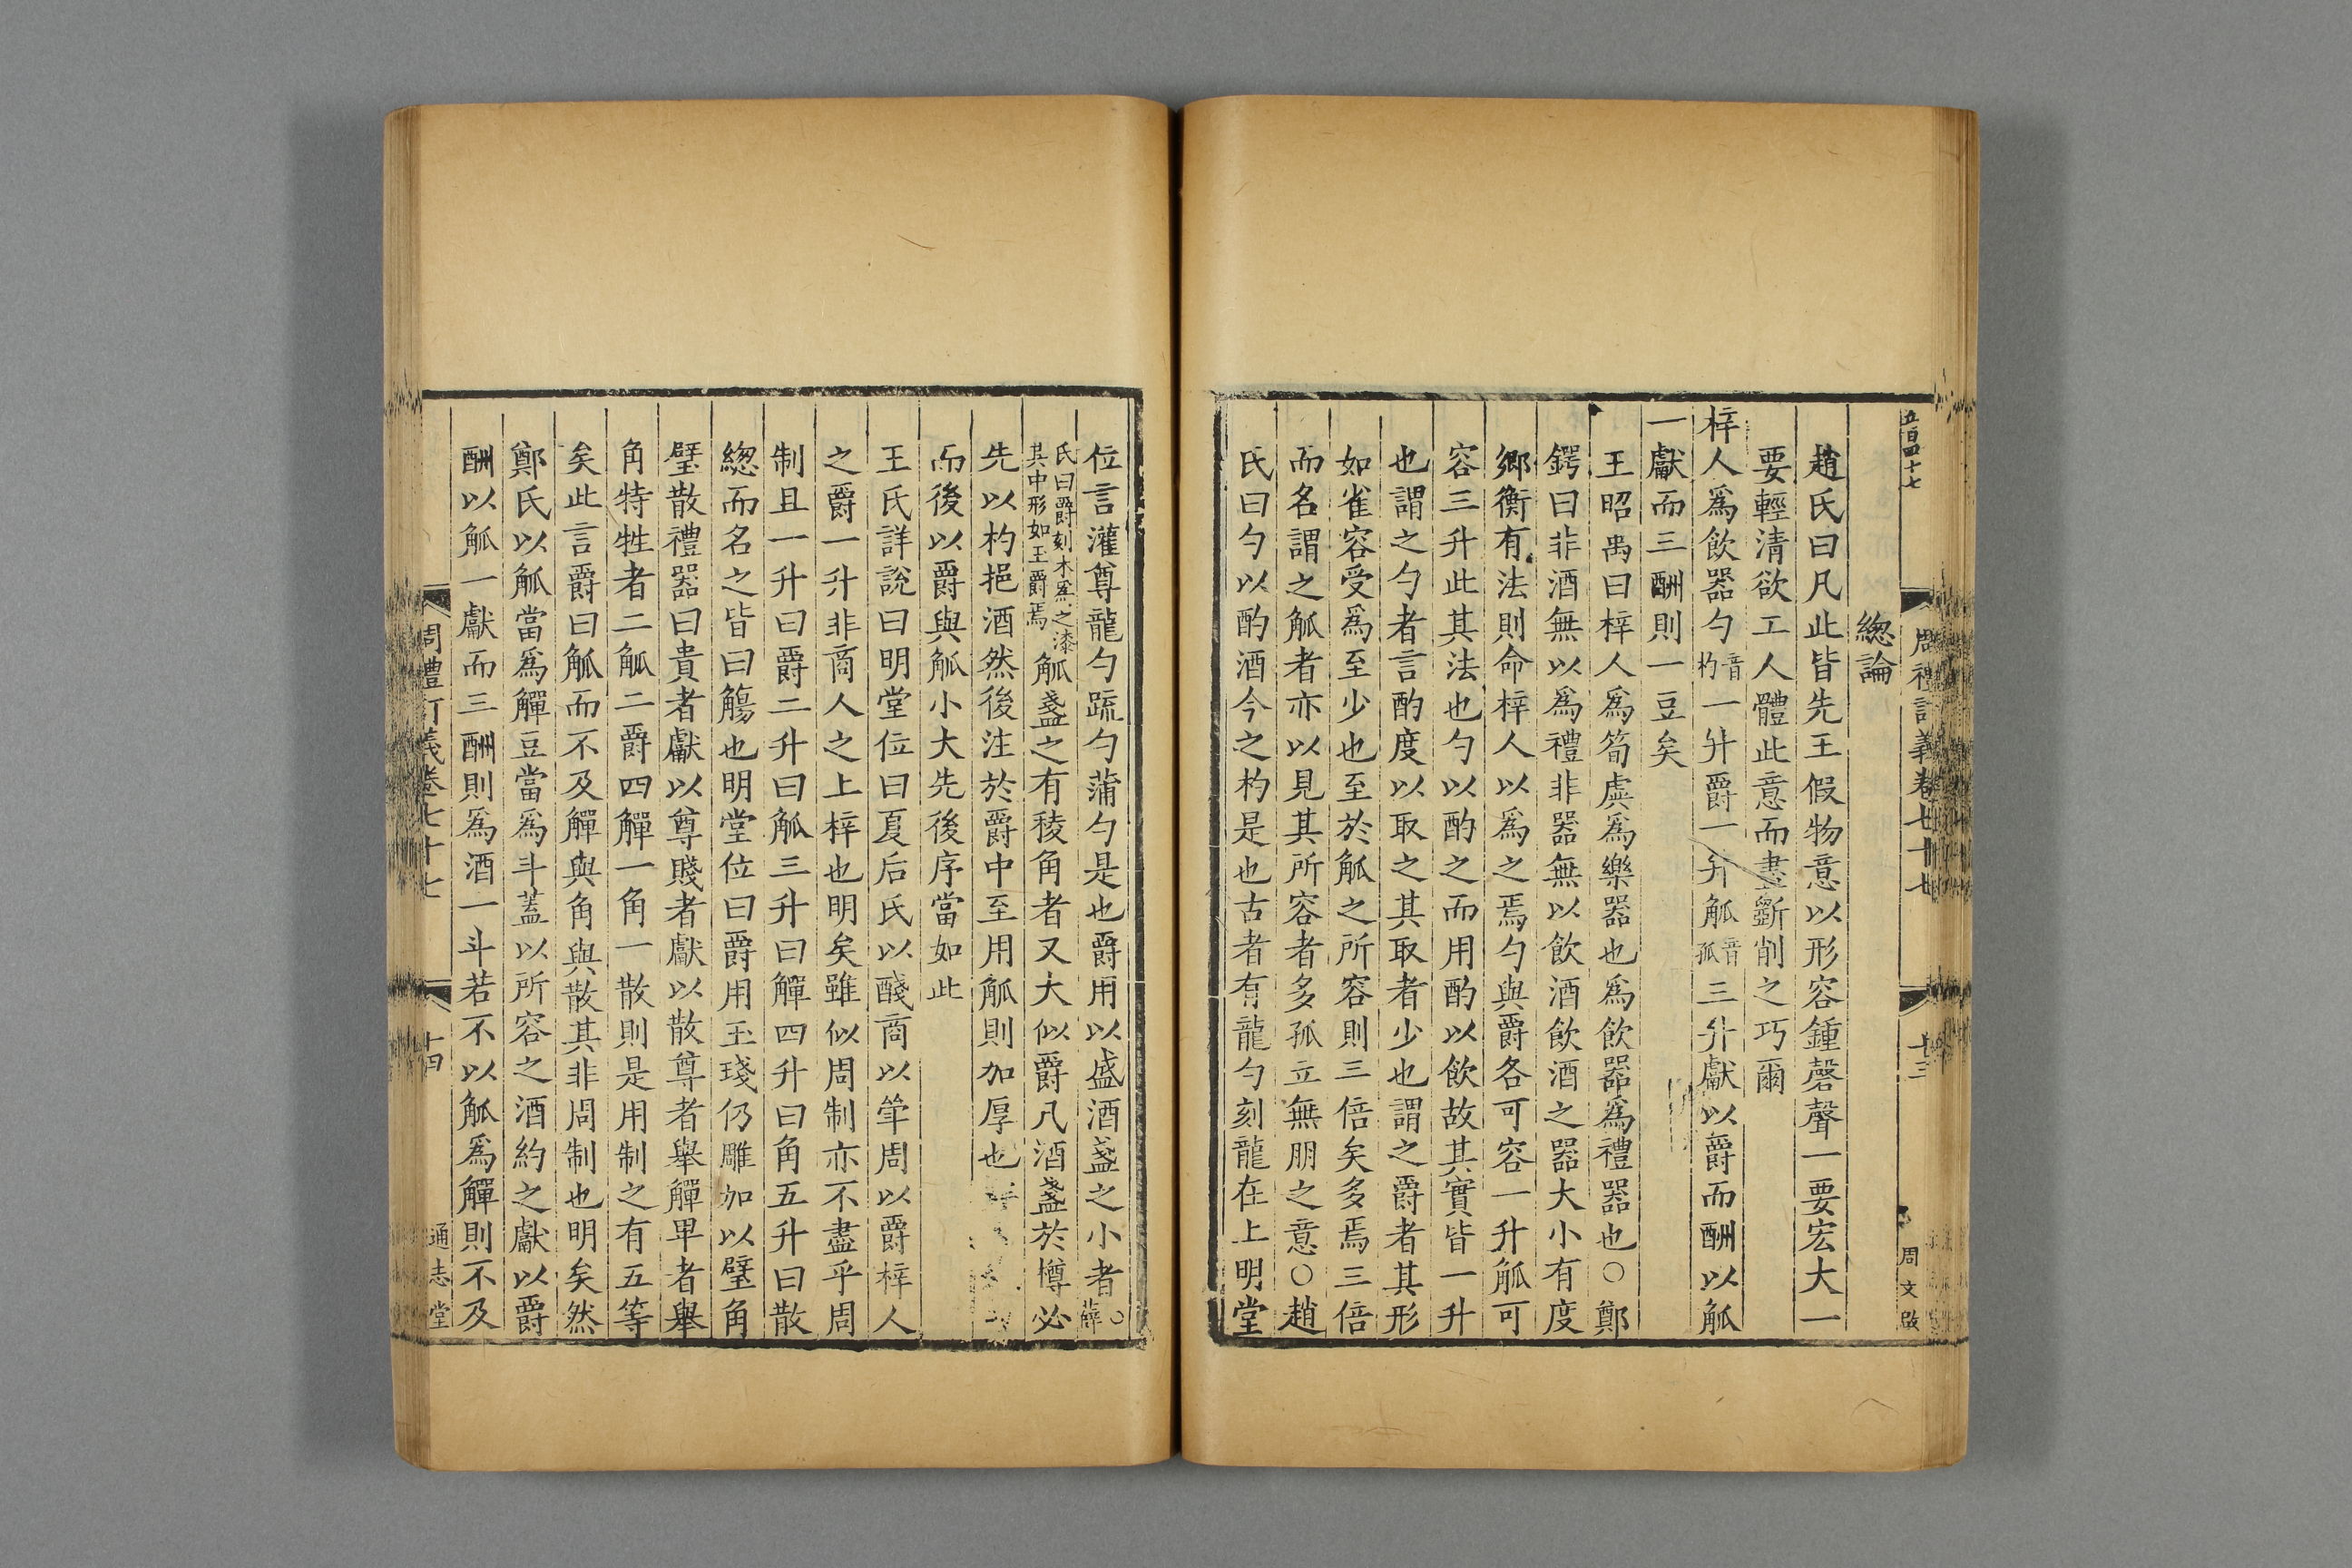 五百四十七
周禮訂義卷七十七
十三
周文啟
緫論
趙氏曰凡此皆先王假物意以形容鍾磬聲一要宏大一
要輕清欲工人體此意而盡斲削之巧爾
梓人爲飲器勺音杓一升爵一升觚音孤三升獻以爵而酬以觚
一獻而三酬則一豆矣
王昭禹曰梓人爲筍虡爲樂器也爲飲器爲禮器也○鄭
鍔曰非酒無以爲禮非器無以飲酒飲酒之器大小有度
鄉衡有法則命梓人以爲之焉勺與爵各可容一升觚可
容三升此其法也勺以酌之而用酌以飲故其實皆一升
也謂之勺者言酌度以取之其取者少也謂之爵者其形
如雀容受爲至少也至於觚之所容則三倍矣多焉三倍
而名謂之觚者亦以見其所容者多孤立無朋之意○趙
氏曰勺以酌酒今之杓是也古者有龍勺刻龍在上明堂
位言灌尊龍勺疏勺蒲勺是也爵用以盛酒盞之小者○薛
氏曰爵刻木爲之漆其中形如玉爵焉觚盞之有稜角者又大似爵凡酒盞於樽必
先以杓挹酒然後注於爵中至用觚則加厚也
而後以爵與觚小大先後序當如此
王氏詳說曰明堂位曰夏后氏以醆商以斝周以爵梓人
之爵一升非商人之上梓也明矣雖似周制亦不盡乎周
制且一升曰爵二升曰觚三升曰觶四升曰角五升曰散
緫而名之皆曰觴也明堂位曰爵用玉琖仍雕加以璧角
璧散禮器曰貴者獻以尊賤者獻以散尊者舉觶卑者舉
角特牲者二觚二爵四觶一角一散則是用制之有五等
矣此言爵曰觚而不及觶與角與散其非周制也明矣然
鄭氏以觚當爲觶豆當爲斗蓋以所容之酒約之獻以爵
酬以觚一獻而三酬則爲酒一斗若不以觚爲觶則不及
周禮訂義卷七十七
十四
通志堂